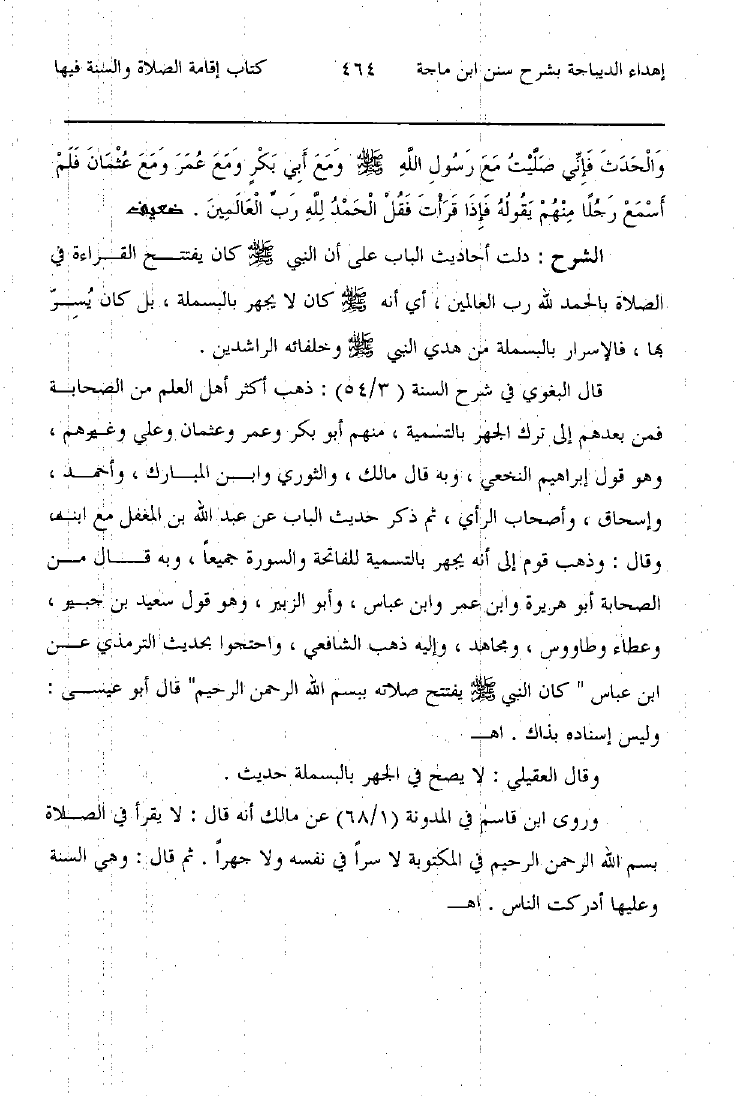 إهداء الديباجة بشرح سنن ابن ماجة ٤٦٤ كتاب إقامة الصلاة والسنة فيها
وَالْحَدَثَ فَإِنِّي صَلَّيْتُ مَعَ رَسُولِ اللَّهِ ﷺ وَمَعَ أَبِي بَكْرٍ وَمَعَ عُمَرَ وَمَعَ عُثْمَانَ فَلَمْ
أَسْمَعْ رَجُلًا مِنْهُمْ يَقُولُهُ فَإِذَا قَرَأْتَ فَقُلْ الْحَمْدُ لِلَّهِ رَبِّ الْعَالَمِينَ . ضعيف
الشرح : دلت أحاديث الباب على أن النبي ﷺ كان يفتتـــح القـــراءة في
الصلاة بالحمد لله رب العالمين ، أي أنه ﷺ كان لا يجهر بالبسملة ، بل كان يُسِـرّ
بها ، فالإسرار بالبسملة من هدي النبي ﷺ وخلفائه الراشدين .
قال البغوي في شرح السنة ( ٥٤/٣ ) : ذهب أكثر أهل العلم من الصحابـة
فمن بعدهم إلى ترك الجهر بالتسمية ، منهم أبو بكر وعمر وعثمان وعلي وغـيرهم ،
وهو قول إبراهيم النخعي ، وبه قال مالك ، والثوري وابـــن المبـــارك ، وأحمـــد ،
وإسحاق ، وأصحاب الرأي ، ثم ذكر حديث الباب عن عبد الله بن المغفل مع ابنه،
وقال : وذهب قوم إلى أنه يجهر بالتسمية للفاتحة والسورة جميعاً ، وبه قـــال مـــن
الصحابة أبو هريرة وابن عمر وابن عباس ، وأبو الزبير ، وهو قول سعيد بن جبـير ،
وعطاء وطاووس ، ومجاهد ، وإليه ذهب الشافعي ، واحتجوا بحديث الترمذي عـــن
ابن عباس " كان النبي ﷺ يفتتح صلاته ببسم الله الرحمن الرحيم" قال أبو عيســـى :
وليس إسناده بذاك . اهـ
وقال العقيلي : لا يصح في الجهر بالبسملة حديث .
وروى ابن قاسم في المدونة (٦٨/١) عن مالك أنه قال : لا يقرأ في الصـلاة
بسم الله الرحمن الرحيم في المكتوبة لا سراً في نفسه ولا جهراً . ثم قال : وهي السنة
وعليها أدركت الناس . اهـ